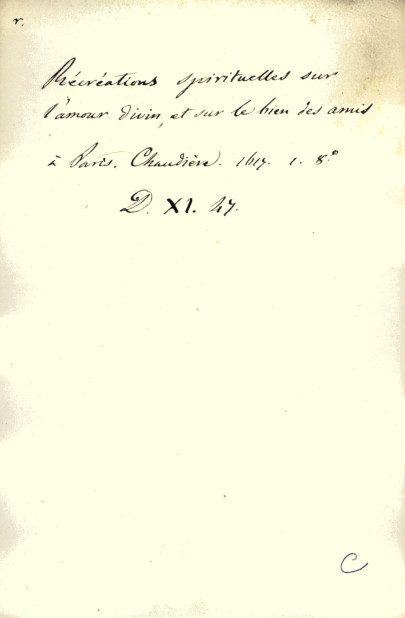 r.
Récréations spirituelles sur
l'amour divin, et sur le bien des amis
à Paris. Chaudière. 1617. 1. 8.°
D. XI. 47.
C